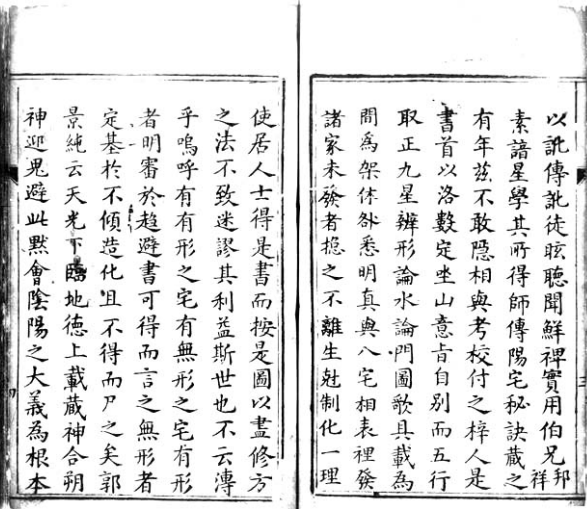 以訛傳訛徒眩聽聞鮮裨實用伯兄邦祥
素諳星學其所得師傳陽宅秘訣藏之
有年兹不敢隱相與考校付之梓人是
書首以洛數定坐山意旨自别而五行
取正九星辨形論水論門圖歌具載為
間為架休咎悉明真與八宅相表裡發
諸家未發者揔之不離生尅制化一理
使居人士得是書而按是圖以盡修方
之法不致迷謬其利益斯世也不云溥
乎嗚呼有有形之宅有無形之宅有形
者明審於趋避書可得而言之無形者
定基於不傾造化且不得而尸之矣郭
景純云天光下臨地德上載蔵神合朔
神迎鬼避此黙會陰陽之大義為根本